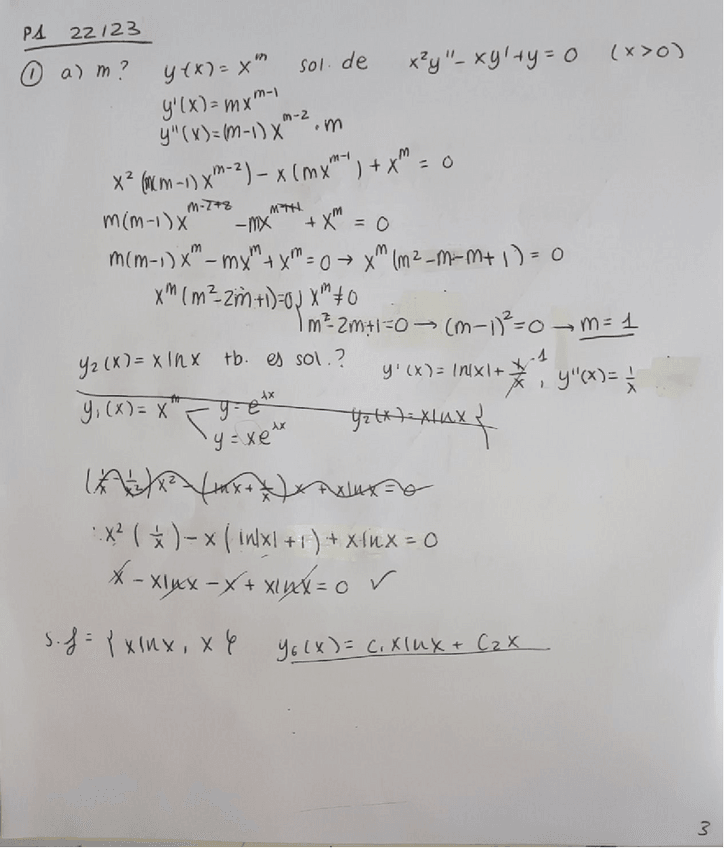 P1 22/23
① a) m? y(x) = x^m sol. de x²y'' - xy' + y = 0 (x>0)
y'(x) = mx^(m-1)
y''(x) = (m-1)x^(m-2) · m
x² (m(m-1)x^(m-2)) - x(mx^(m-1)) + x^m = 0
m(m-1)x^(m-2+2) - mx^(m-1+1) + x^m = 0
m(m-1)x^m - mx^m + x^m = 0 → x^m (m² - m - m + 1) = 0
x^m (m² - 2m + 1) = 0 } x^m ≠ 0
m² - 2m + 1 = 0 → (m-1)² = 0 → m = 1
y₂(x) = x ln x tb. es sol.? y'(x) = ln|x| + x/x 1, y''(x) = 1/x
y₁(x) = x^m y = e^(λx) y₂(x) = x ln x }
y = xe^(λx)
(1/x - 1/x²)x² - (ln x + 1/x)x + x ln x = 0
x² (1/x) - x(ln|x| + 1) + x ln x = 0
x - x ln x - x + x ln x = 0 ✓
s.f = { x ln x, x } y_G(x) = C₁ x ln x + C₂ x
3